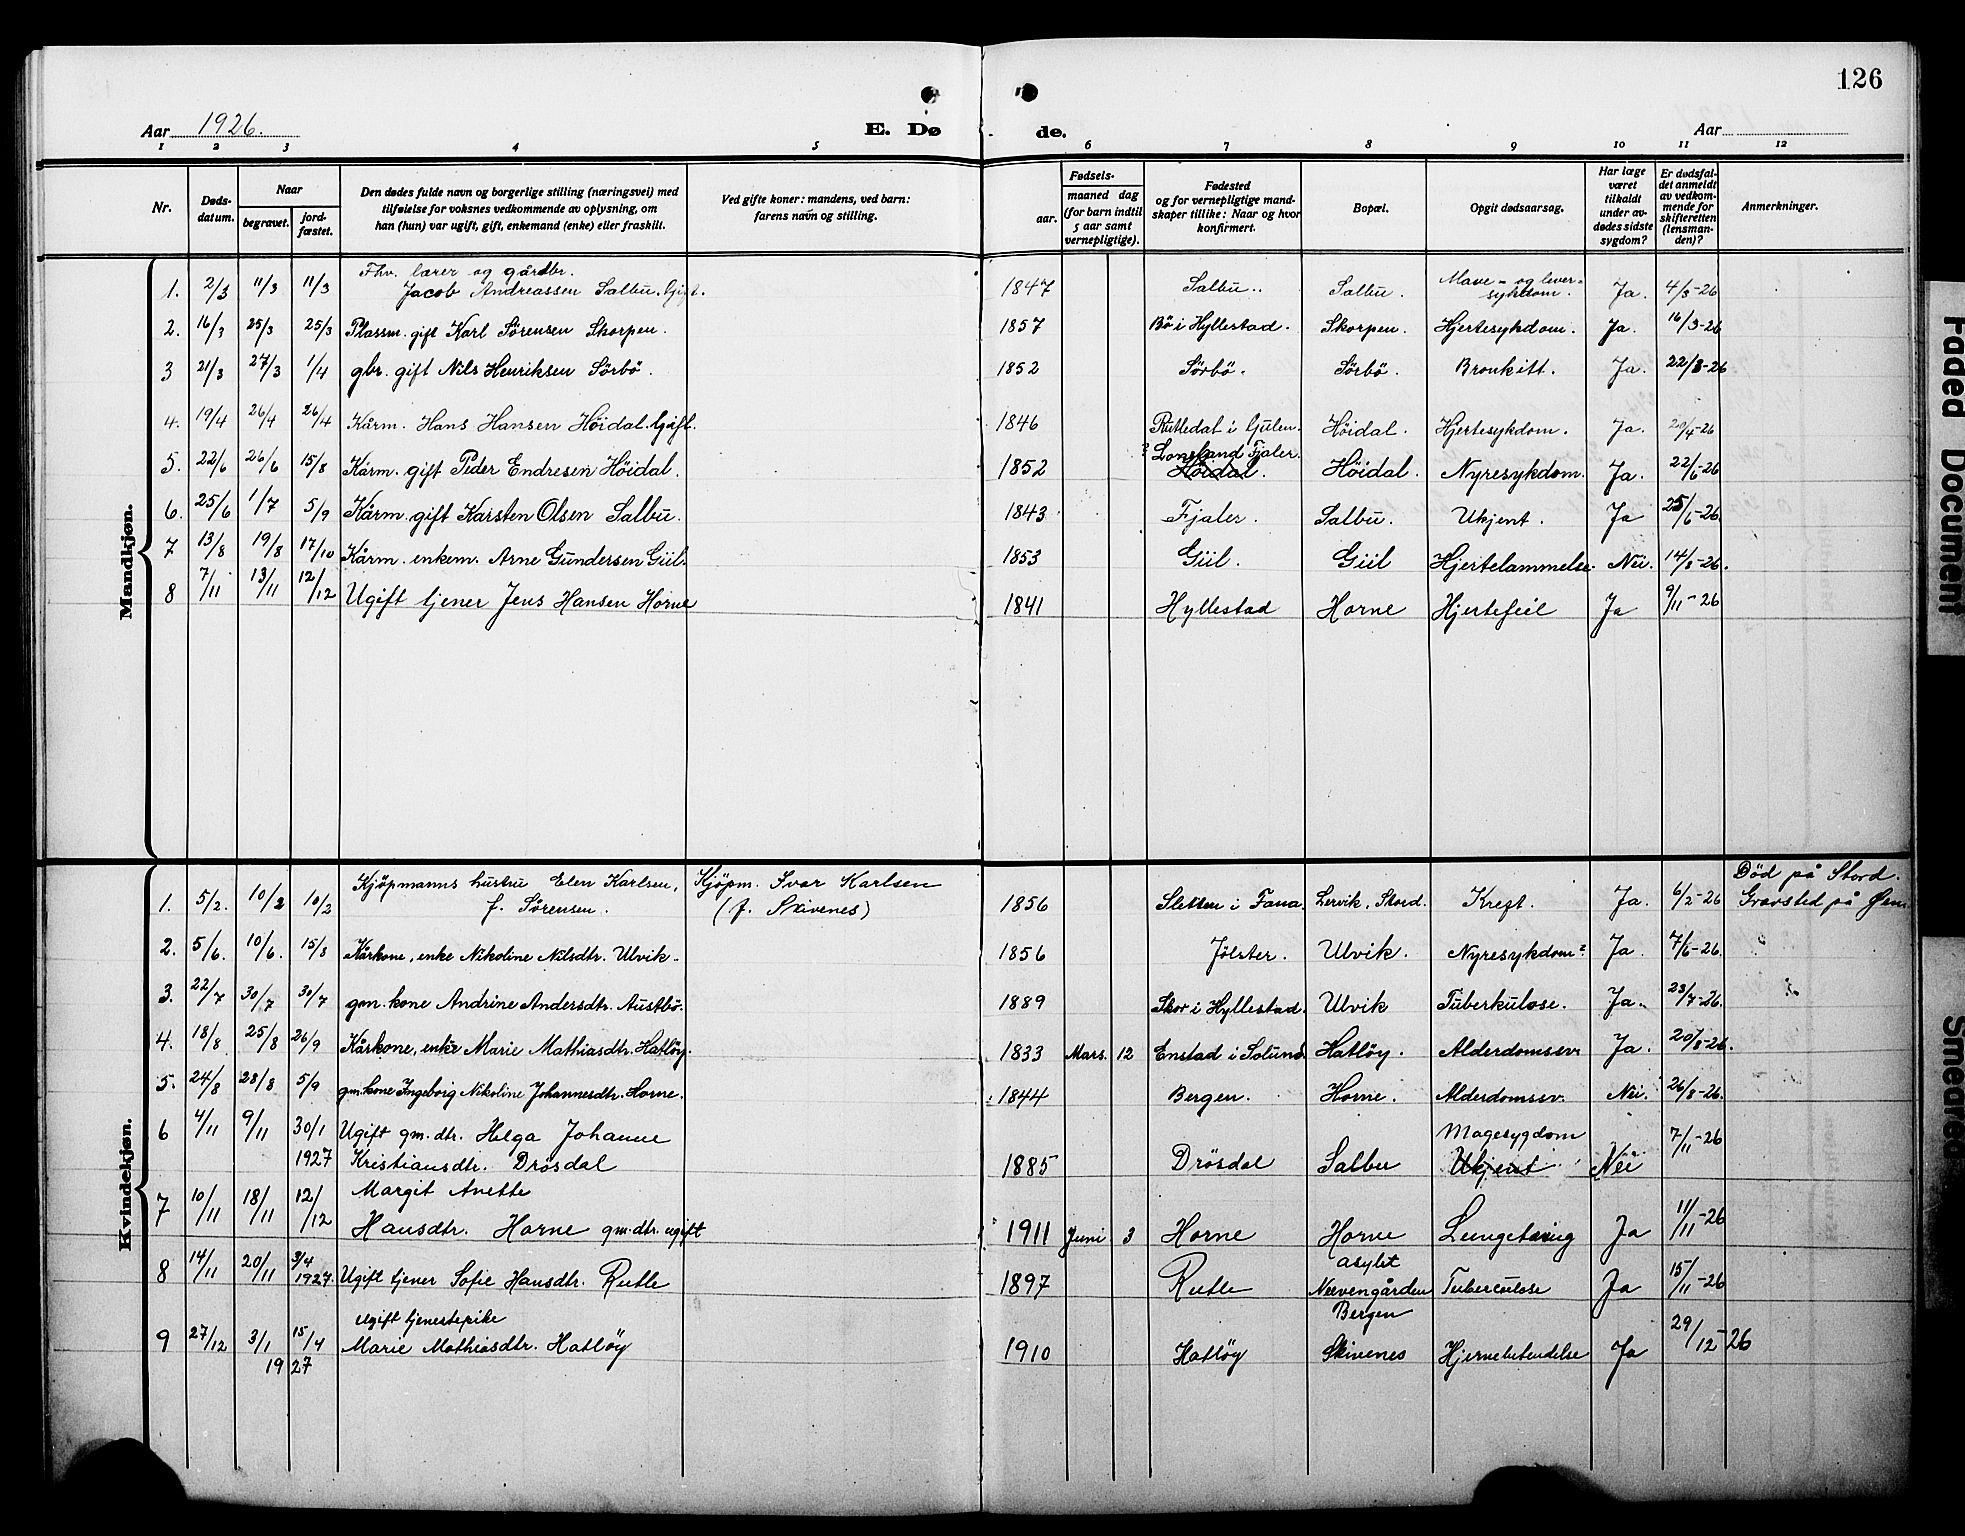 126
Aar 1926.
E. Dø de.
Aar
1 2 3 4 5 6 7 8 9 10 11 12
Nr.
Døds-
datum.
Naar
begravet.
jord-
fæstet.
Den dødes fulde navn og borgerlige stilling (næringsvei) med
tilføielse for voksnes vedkommende av oplysning, om
han (hun) var ugift, gift, enkemand (enke) eller fraskilt.
Ved gifte koner: mandens, ved barn:
farens navn og stilling.
Fødsels-
aar.
maaned dag
(for barn indtil
5 aar samt
vernepligtige).
Fødested
og for vernepligtige mand-
skaper tillike: Naar og hvor
konfirmert.
Bopæl.
Opgit dødsaarsag.
Har læge
været
tilkaldt
under av-
dødes sidste
sygdom?
Er dødsfal-
det anmeldt
av vedkom-
mende for
skifteretten
(lensman-
den)?
Anmerkninger.
Mandkjøn.
Fhv. lærer og gårdbr.
1. 2/3 11/3 11/3 Jacob Andreassen Salbu. Gift. 1847 Salbu. Salbu. Mave- og lever-
sykdom. Ja. 4/3-26
2. 16/3 25/3 25/3 Plassm. gift Karl Sörensen Skorpen. 1857 Bö i Hyllestad. Skorpen. Hjertesykdom. Ja. 16/3-26
3 21/3 27/3 1/4 gbr. gift Nils Henriksen Sörbö. 1852 Sörbö. Sörbö. Bronkitt. Ja. 22/3-26
4. 19/4 26/4 26/4 Kårm. Hans Hansen Höidal. Gift. 1846 Rutledal i Gulen. Höidal. Hjertesykdom. Ja. 20/4-26
? Loneland Fjaler.
5. 22/6 26/6 15/8 Kårm. gift Peder Endresen Höidal. 1852 Höidal. Höidal. Nyresykdom. Ja. 22/6-26
6. 25/6 1/7 5/9 Kårm. gift Karsten Olsen Salbu. 1843 Fjaler. Salbu. Ukjent. Ja 25/6-26.
7 13/8 19/8 17/10 Kårm. enkem. Arne Gundersen Giil. 1853 Giil. Giil Hjertelammelse. Nei. 14/8-26.
8 7/11 13/11 12/12 Ugift tjener Jens Hansen Horne 1841 Hyllestad Horne Hjertefeil Ja 9/11-26
Kvindekjøn.
Kjöpmanns hustru Elen Karlsen, Kjöpm. Ivar Karlsen Död på Stord.
1. 5/2. 10/2 10/2 f. Sörensen. (f. Skivenes) 1856 Sletten i Fana. Lervik, Stord. Kreft. Ja. 6/2-26 Gravsted på
2. 5/6. 10/6. 15/8 Kårkone, enke Nikoline Nilsdtr. Ulvik. 1856 Jölster. Ulvik. Nyresykdom? Ja. 7/6-26.
3. 22/7 30/7 30/7 gm. kone Andrine Andersdtr. Austbö. 1889 Skor i Hyllestad. Ulvik Tuberkulose. Ja. 23/7-26.
4. 18/8 25/8 26/9 Kårkone, enke Marie Mathiasdtr. Hatlöy. 1833 Mars. 12 Enstad i Solund. Hatlöy. Alderdomssv. Ja. 20/8-26.
5. 24/8 28/8 5/9 gm. kone Ingeborg Nikoline Johannesdtr. Horne. 1844 Bergen. Horne. Alderdomssv. Nei. 26/8-26.
6 4/11 9/11 30/1 Ugift gm. dtr. Helga Johanne Magesygdom 7/11-26
1927 Kristiansdtr. Drösdal 1885 Drösdal Salbu Ukjent Nei
7 10/11 18/11 12/12 Margit Anette
Hansdtr. Horne gm. dtr. ugift 1911 Juni 3 Horne Horne Lungetæring Ja 11/11-26
asylet
8 14/11 20/11 3/4 1927. Ugift tjener Sofie Hansdtr. Rutle 1897 Rutle Neevengården Tuberculose Ja 15/11-26
Bergen
ugift tjenestepike
9 27/12 3/1 15/4 Marie Mathiasdtr. Hatlöy 1910 Hatlöy Skivenes Hjernebetendelse Ja 29/12-26
1927
Faded Document
Smeared